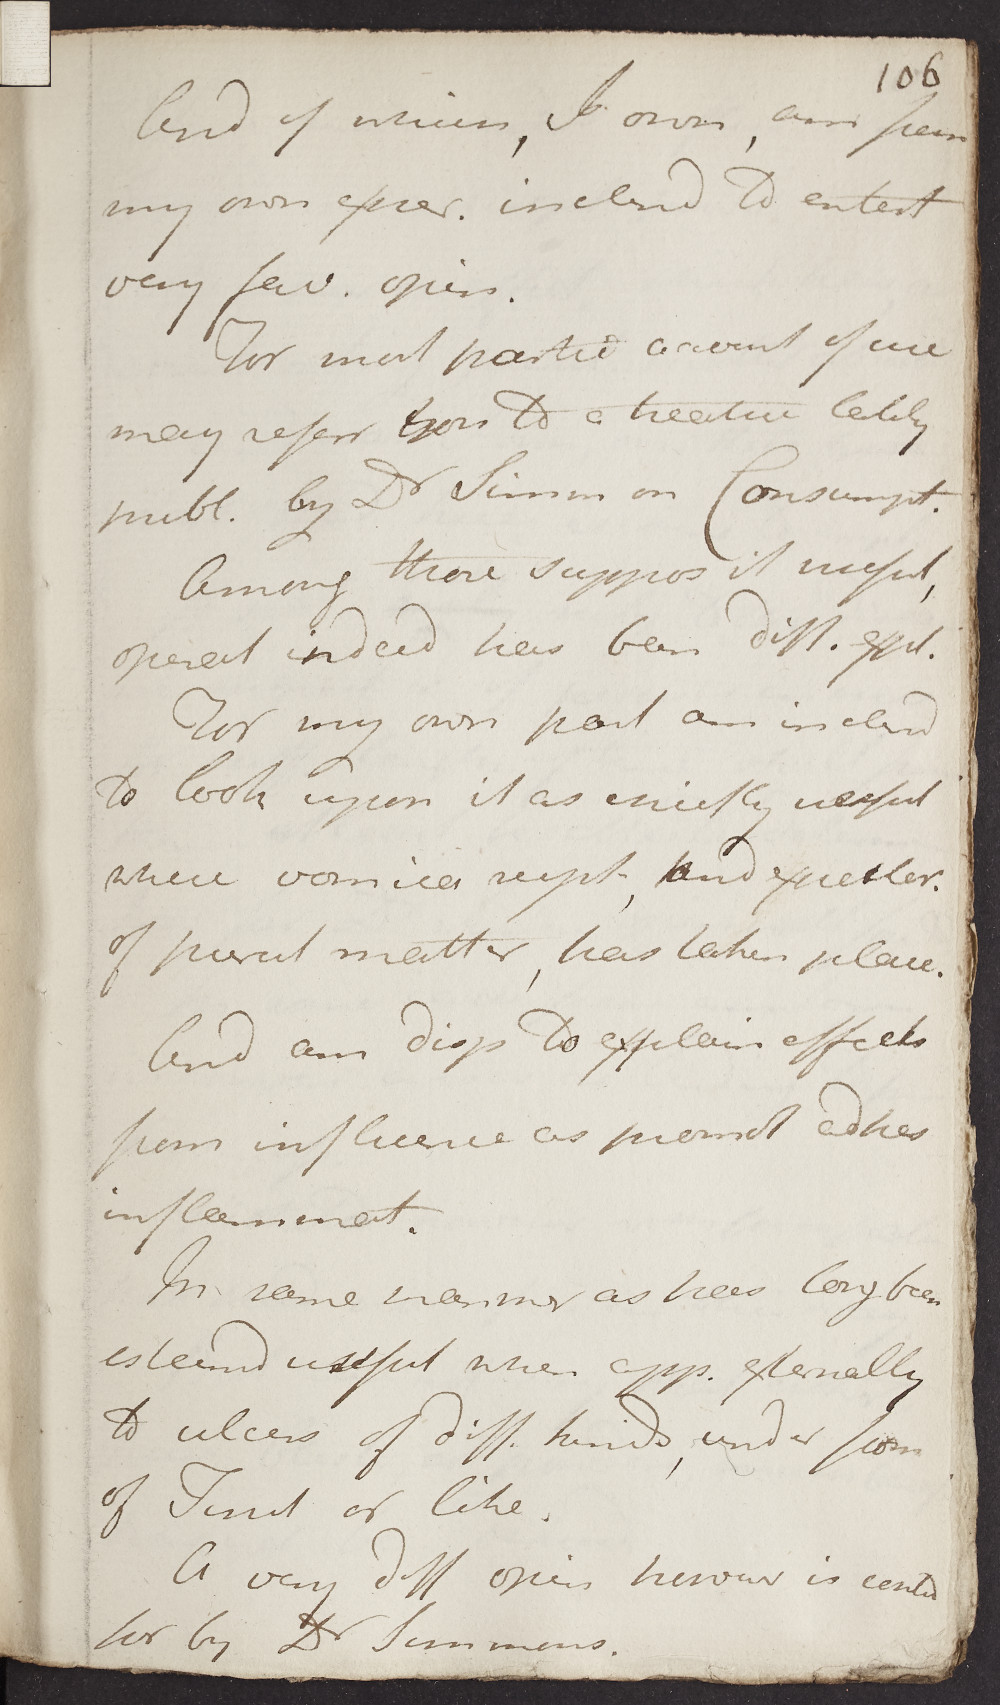 106
And of which, I own, am from
my own exper. inclend to entert
very fav. opin.
For most partic account of use
may refer you to a treatise lately
publ. by Dr Simm on Consumpt.
Among those suppos it useful,
operat indeed has been diff. expl.
For my own part am inclend
to look upon it as chiefly useful
where vomica rupt, and expector.
of purul matter, has taken place.
And am disp to explain effects
from influence as promot adhes
inflammat.
In same manner as has long been
esteemd useful when app. externally
to ulcers of diff. kinds, under form
of Tinct or like.
A very diff opin howevr is contd
for by Dr Simmons.